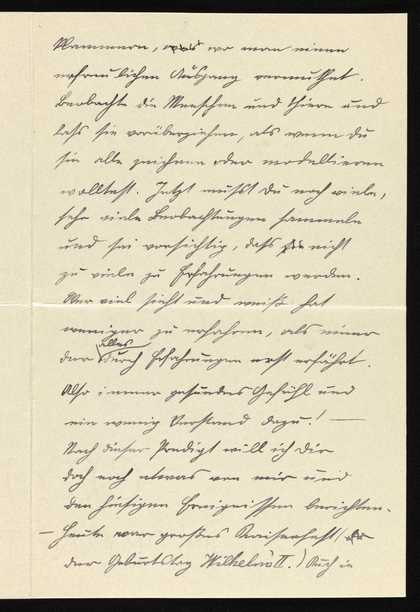 Kammern, wo man einen
erfreulichen Ausgang vermuthet.
Beobachte die Menschen und Thiere und
lass sie vorüberziehen, als wenn du
sie alle zeichnen oder modellieren
wolltest. Jetzt musst Du noch viele,
sehr viele Beobachtungen sammeln
und sei vorsichtig, dass sie nicht
zu viele zu Erfahrungen werden.
Wer viel sieht und weiß hat
weniger zu erfahren, als einer
der alles durch Erfahrungen erst erfährt.
Also immer gesundes Gefühl und
ein wenig Verstand dazu! —
Nach dieser Predigt will ich Dir
doch noch etwas von mir und
den hiesigen Ereignissen berichten.
– Heute war großes Kaiserfest (
der Geburtstag Wilhelms II.) Auch in